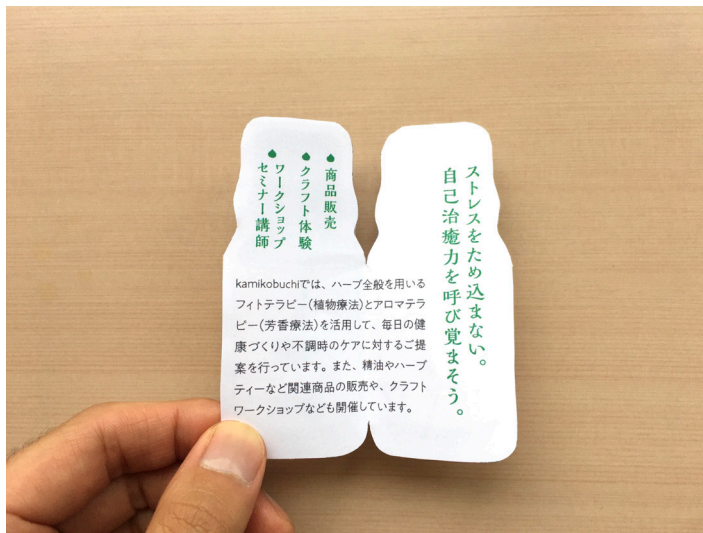 ストレスをため込まない。
自己治癒力を呼び覚まそう。
商品販売
クラフト体験
ワークショップ
セミナー講師
kamikobuchiでは、ハーブ全般を用いる
フィトテラピー(植物療法)とアロマテラ
ピー(芳香療法)を活用して、毎日の健
康づくりや不調時のケアに対するご提
案を行っています。また、精油やハーブ
ティーなど関連商品の販売や、クラフト
ワークショップなども開催しています。